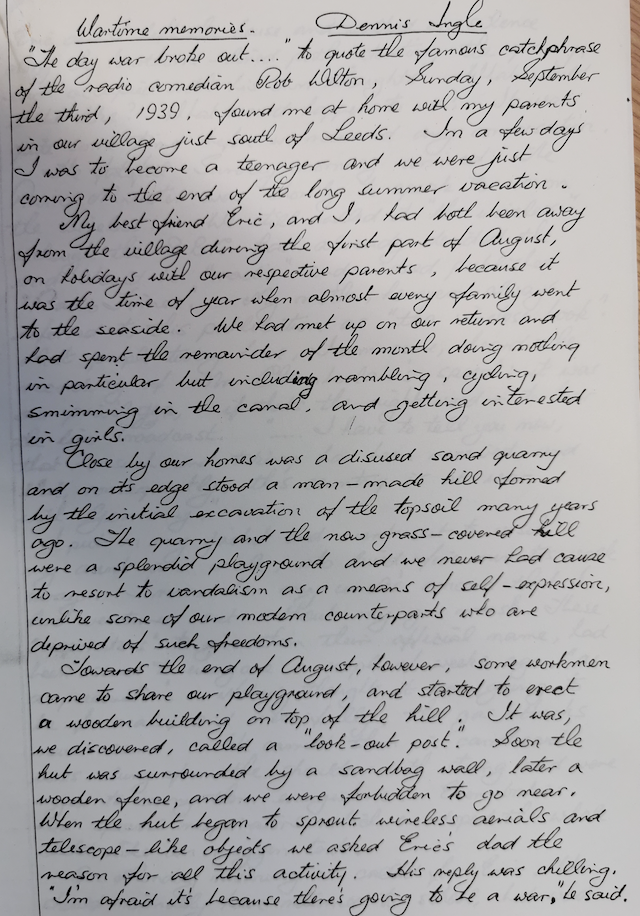 Wartime memories. Dennis Ingle
"The day war broke out...." to quote the famous catchphrase
of the radio comedian Rob Wilton, Sunday, September
the third, 1939, found me at home with my parents
in our village just south of Leeds. In a few days
I was to become a teenager and we were just
coming to the end of the long summer vacation.
My best friend Eric, and I, had both been away
from the village during the first part of August,
on holidays with our respective parents, because it
was the time of year when almost every family went
to the seaside. We had met up on our return and
had spent the remainder of the month doing nothing
in particular but including rambling, cycling,
swimming in the canal, and getting interested
in girls.
Close by our homes was a disused sand quarry
and on its edge stood a man-made hill formed
by the initial excavation of the topsoil many years
ago. The quarry and the now grass-covered hill
were a splendid playground and we never had cause
to resort to vandalism as a means of self-expression,
unlike some of our modern counterparts who are
deprived of such freedoms.
Towards the end of August, however, some workmen
came to share our playground, and started to erect
a wooden building on top of the hill. It was,
we discovered, called a "look-out post." Soon the
hut was surrounded by a sandbag wall, later a
wooden fence, and we were forbidden to go near.
When the hut began to sprout wireless aerials and
telescope-like objects we asked Eric's dad the
reason for all this activity. His reply was chilling.
"I'm afraid it's because there's going to be a war," he said.